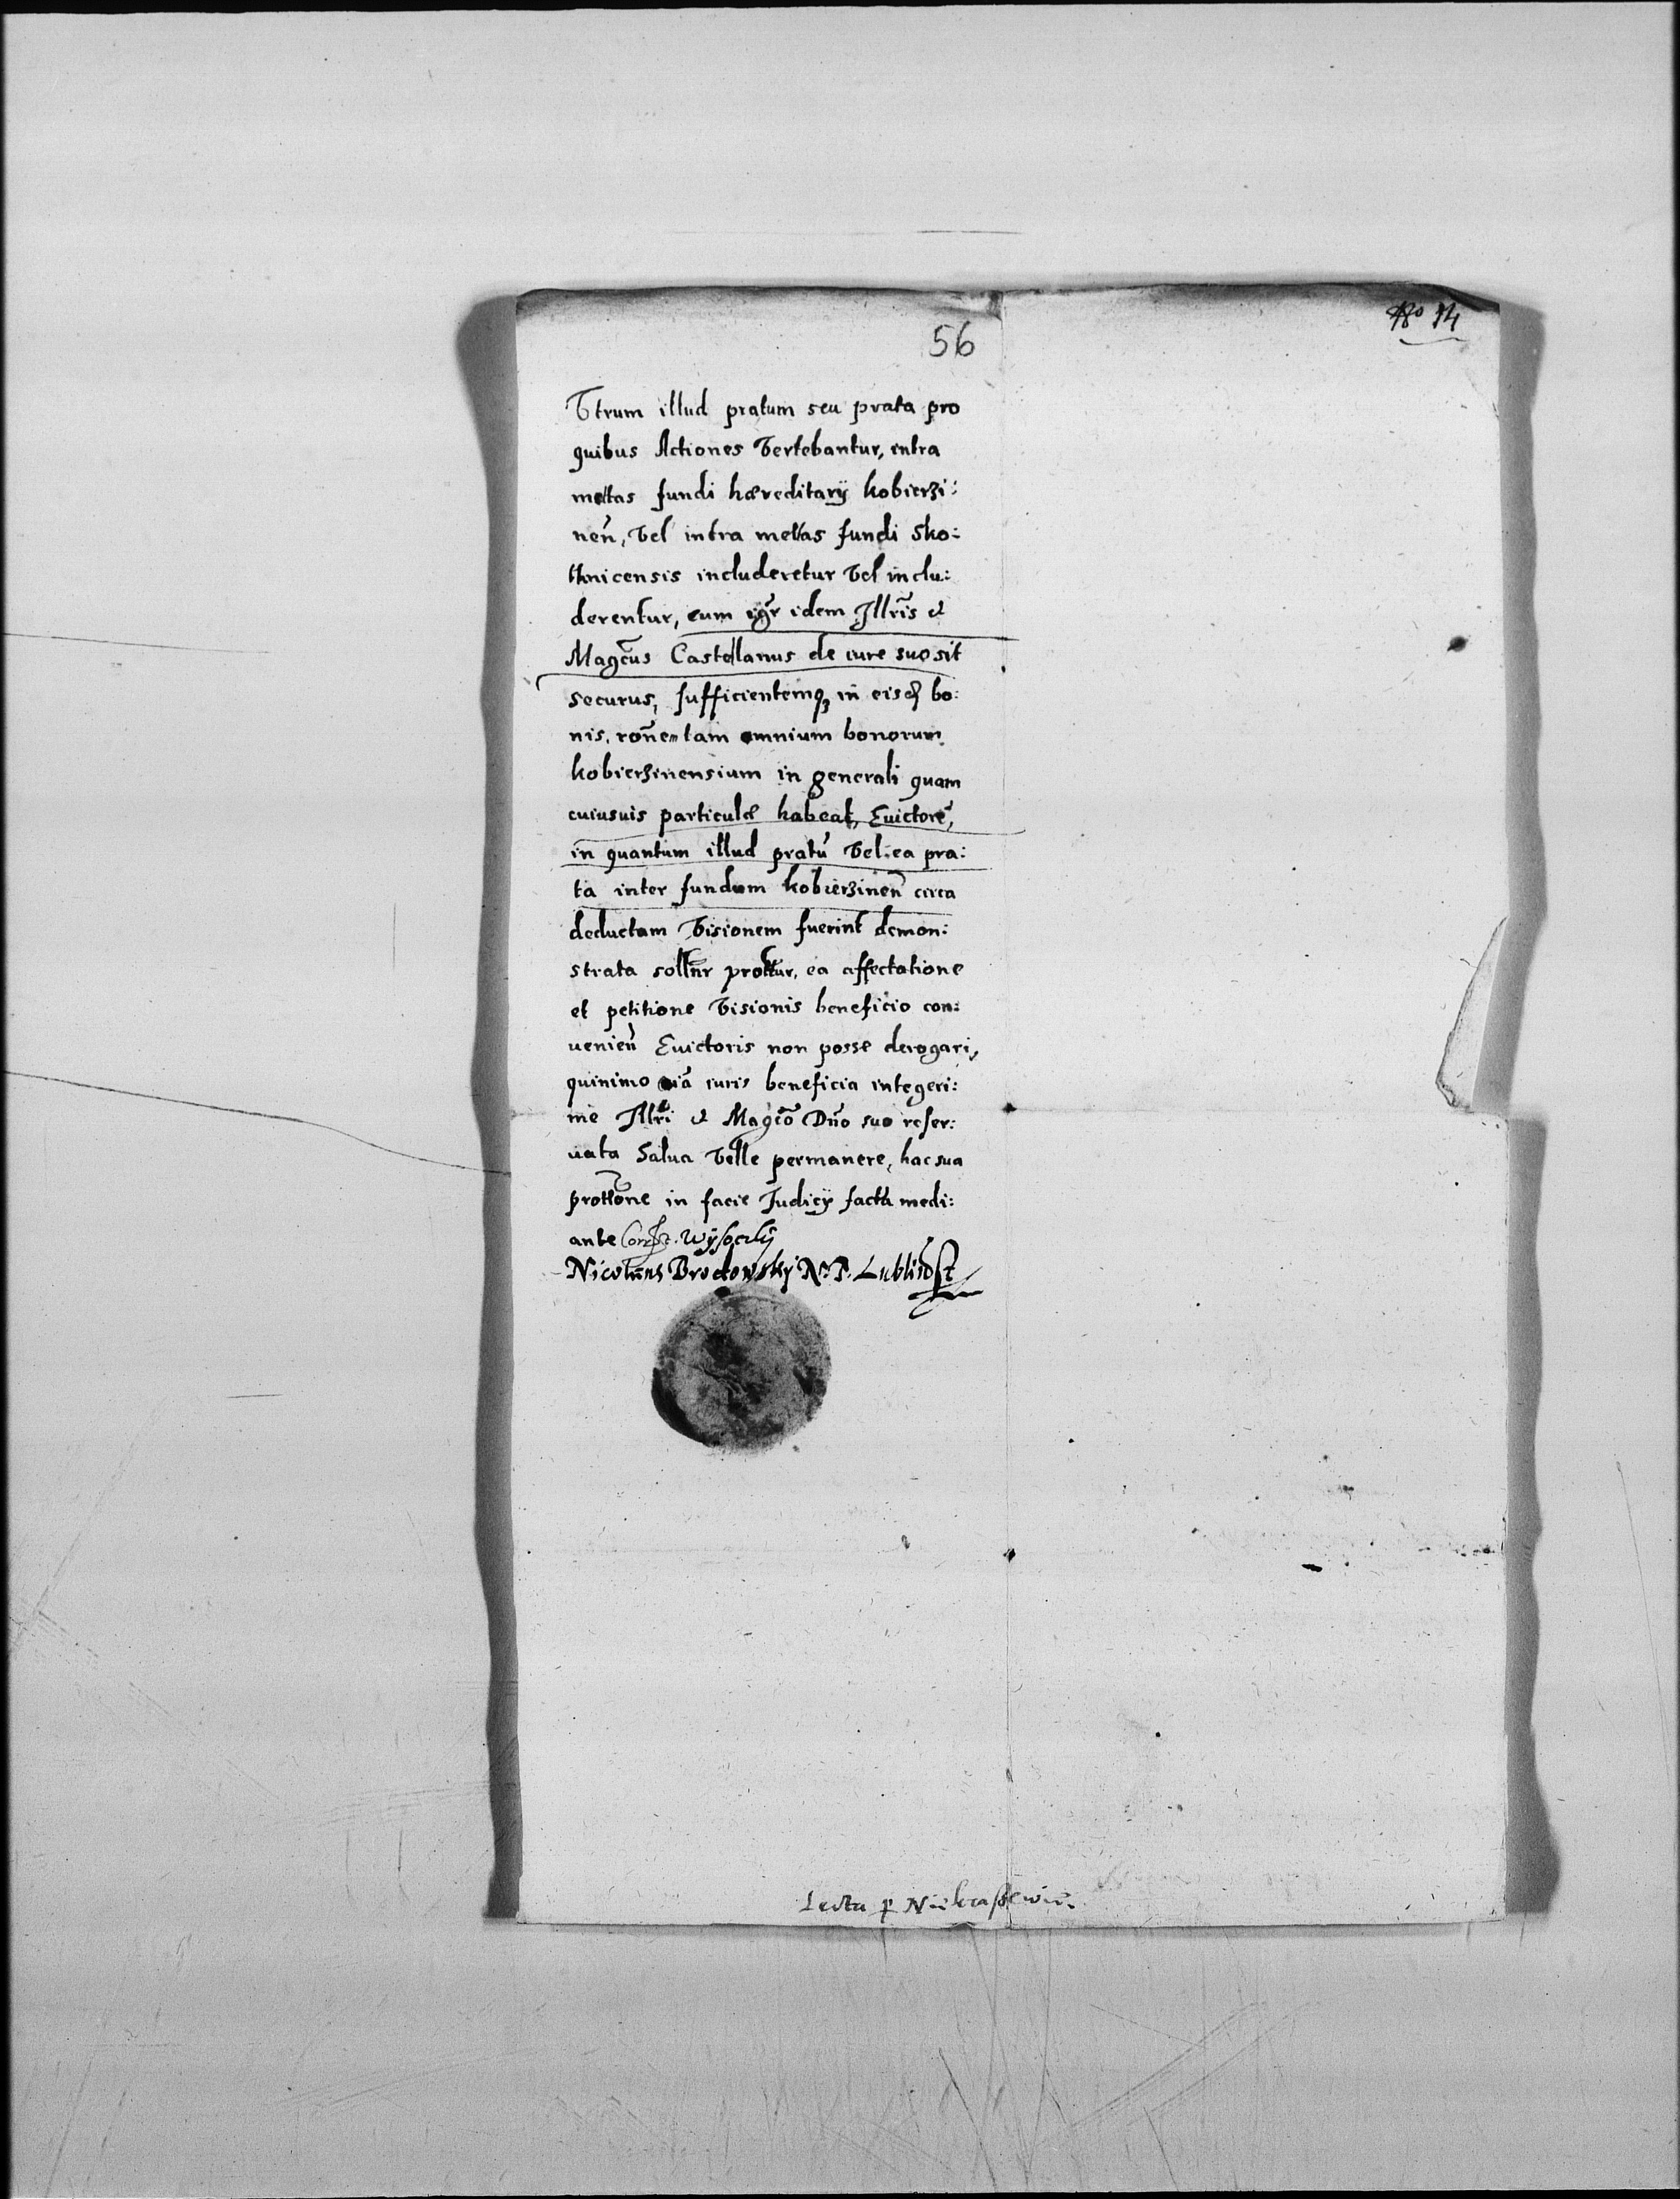 No 14
56
Vtrum illud pratum seu prata pro
quibus Actiones Vertebantur, intra
mettas fundi hæreditarÿ kobierzi:
nen̄, Vel intra mettas fundi Sko:
thnicensis includeretur Vel inclu:
derentur, cum igr̄ idem Illrīs et
Magc̄us Castellanus de iure suo sit
securus, sufficientemq3 in eisd bo:
nis, ron̄e tam omnium bonorum
kobierzinensium in generali quam
cuiusuis particulæ habeat, Euictorē,
in quantum illud pratū Vel ea pra:
ta inter fundum kobierzinen̄ circa
deductam Visionem fuerint demon:
strata sollr̄ prottur, ea affectatione
et petitione Visionis beneficio con:
uenien̄ Euictoris non posse derogari,
quinimo oīa iuris beneficia integeri:
me Illrī et Magc̄o Dn̄o suo reser:
uata Salua Velle permanere, hac sua
prottōne in facie Judicÿ facta medi:
ante Wÿsoczkÿ
Nicolaus Brodowskÿ N. T. Lubl
Lecta p Niekraszewic.